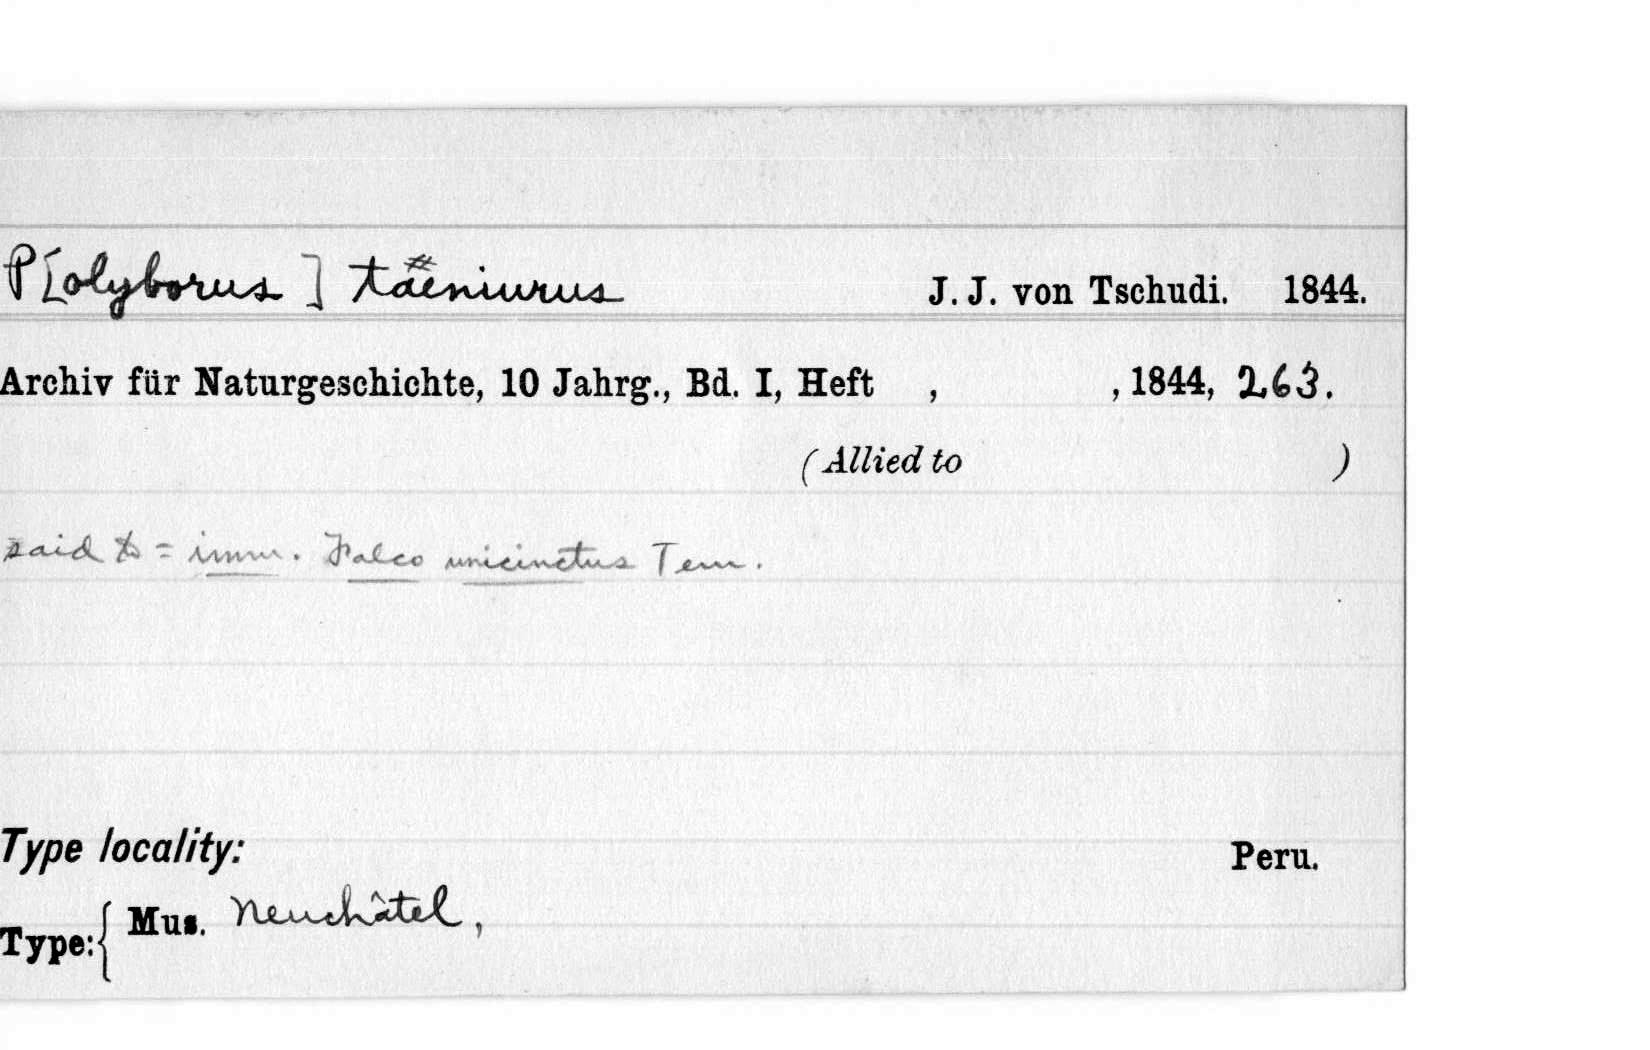 P[olyborus] täeniurus J. J. von Tschudi. 1844.
Archiv für Naturgeschichte, 10 Jahrg., Bd. I, Heft , , 1844, 263.
(Allied to )
said to = imm. Falco unicinctus Tem.
Type locality: Peru.
Type: { Mus. Neuchâtel,